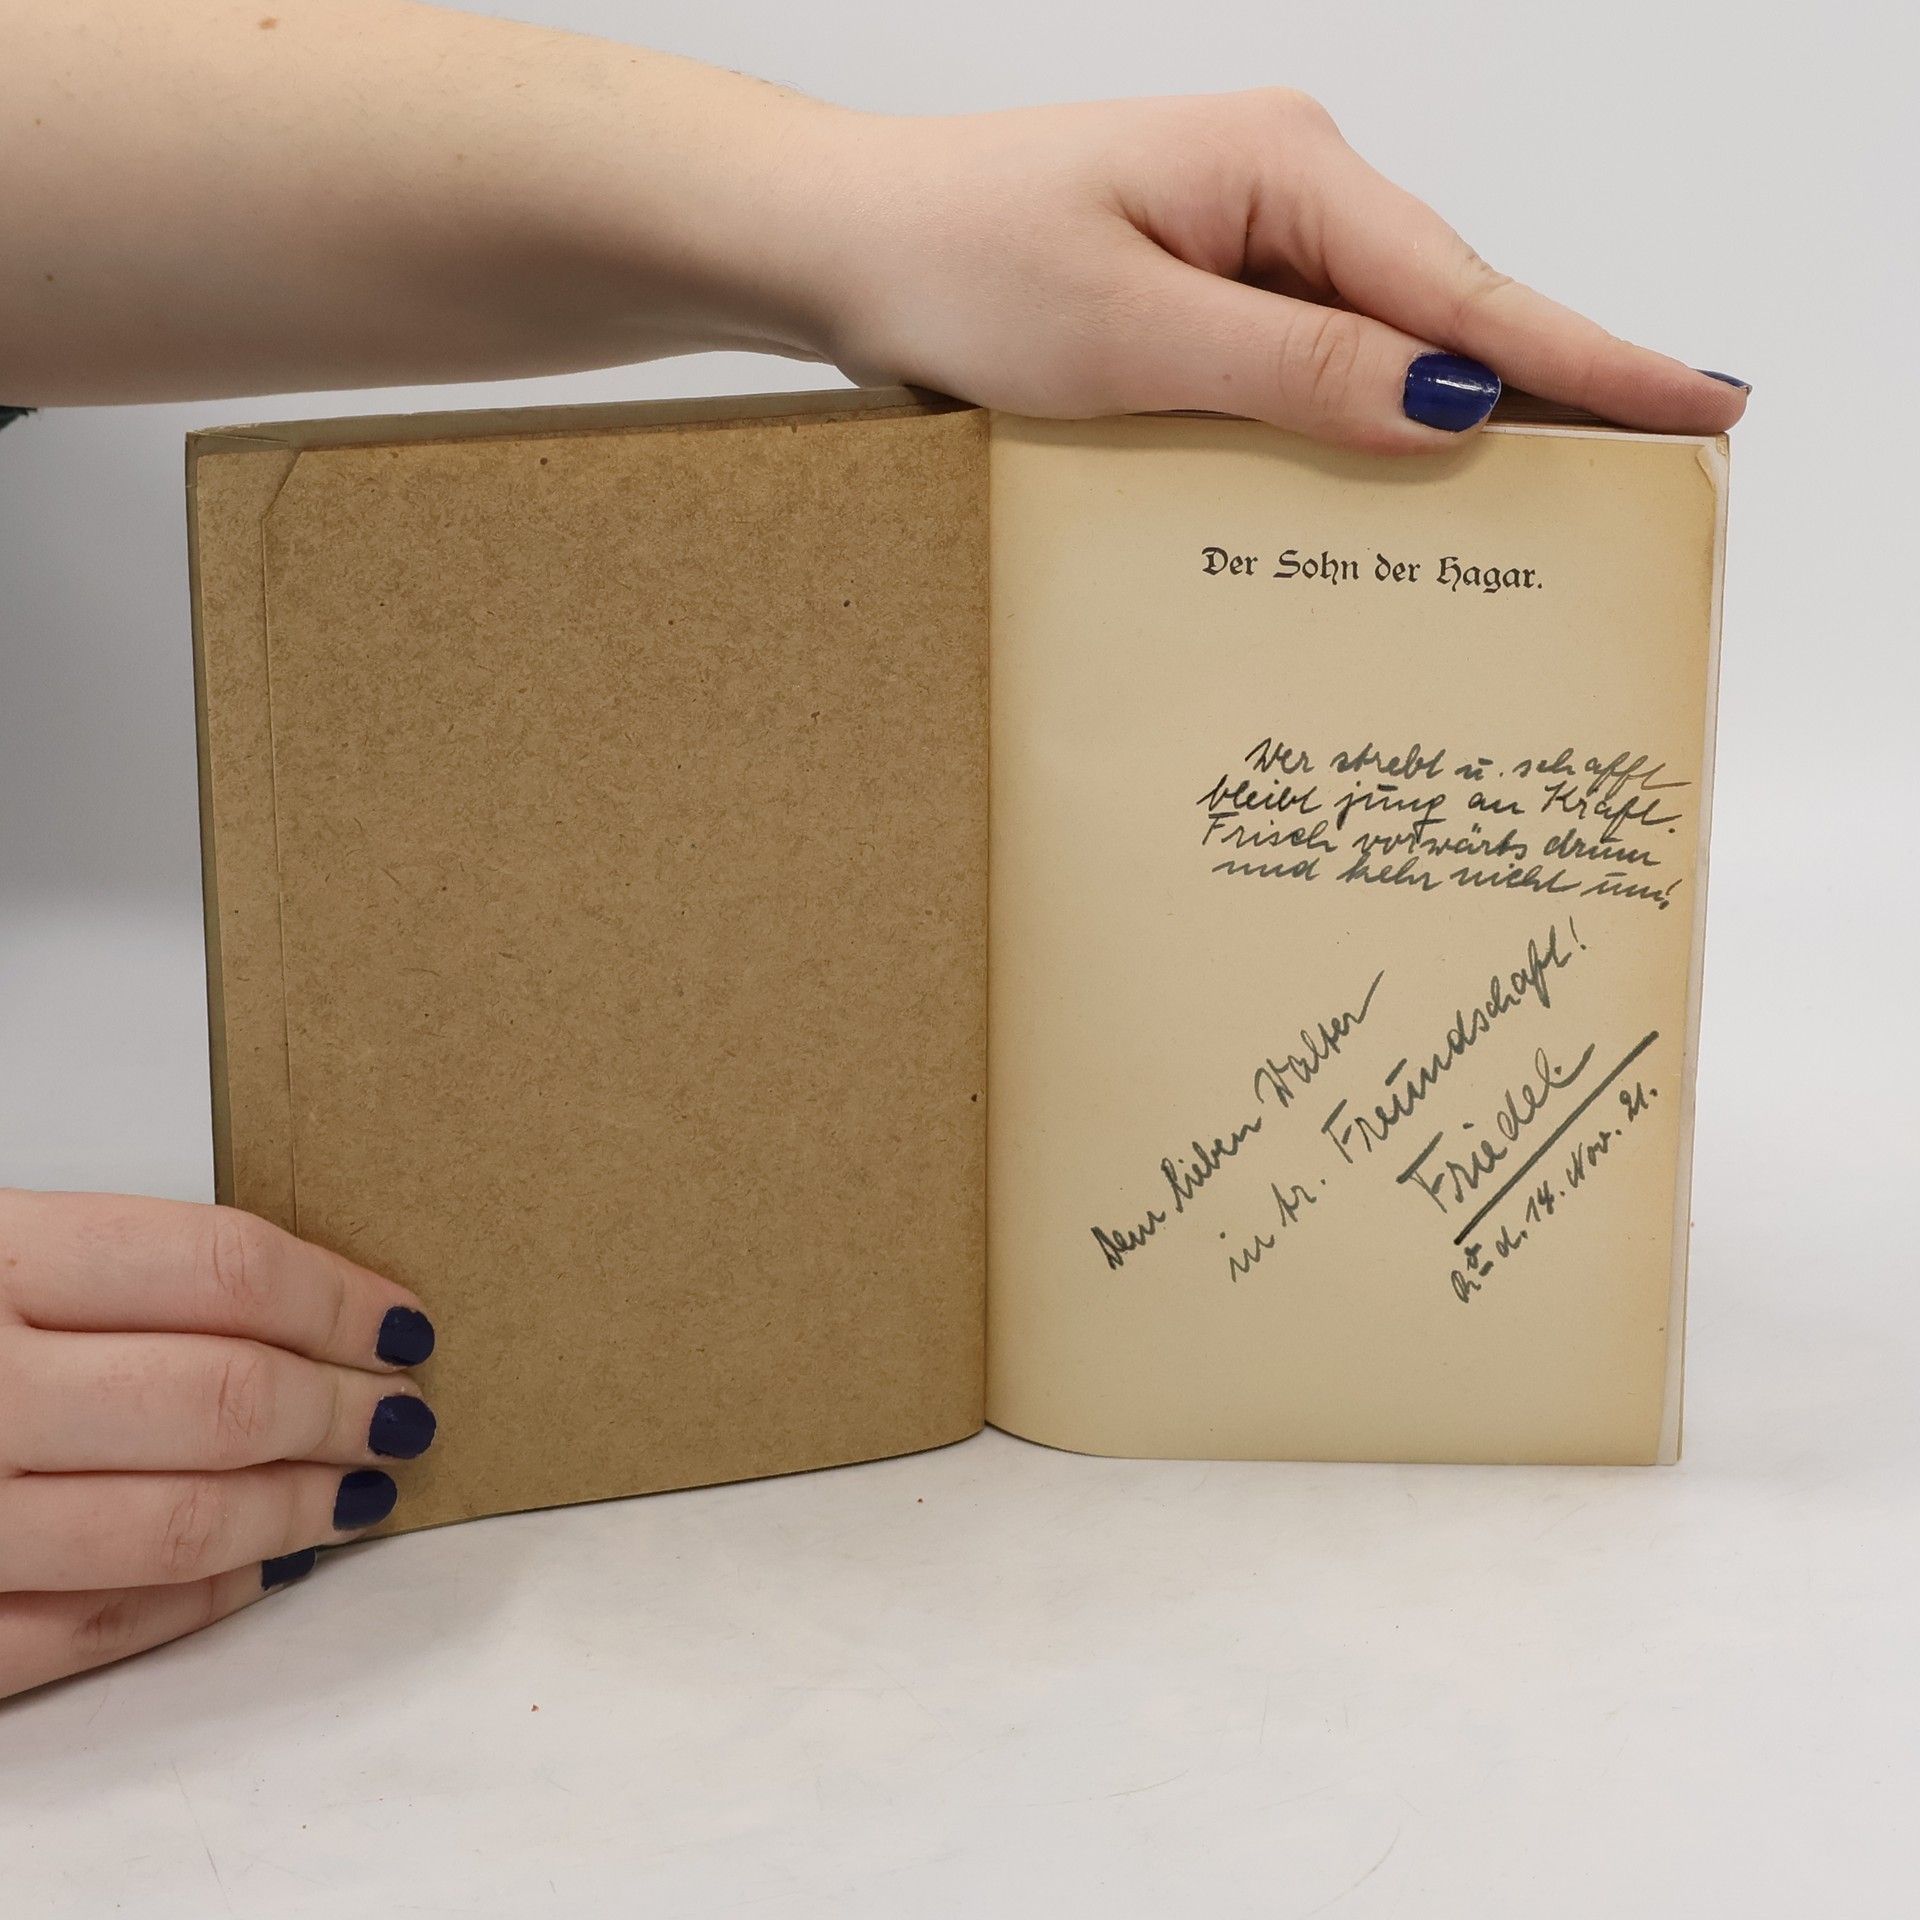 Der Sohn der Hagar.
Wer strebt ū. schafft
bleibt jūng an Kraft.
Frisch vorwärts drūm
und kehr nicht ūm!
Dem lieben Walter
in tr. Freūndschaft!
Friedel.
d. 14. Nov. 21.